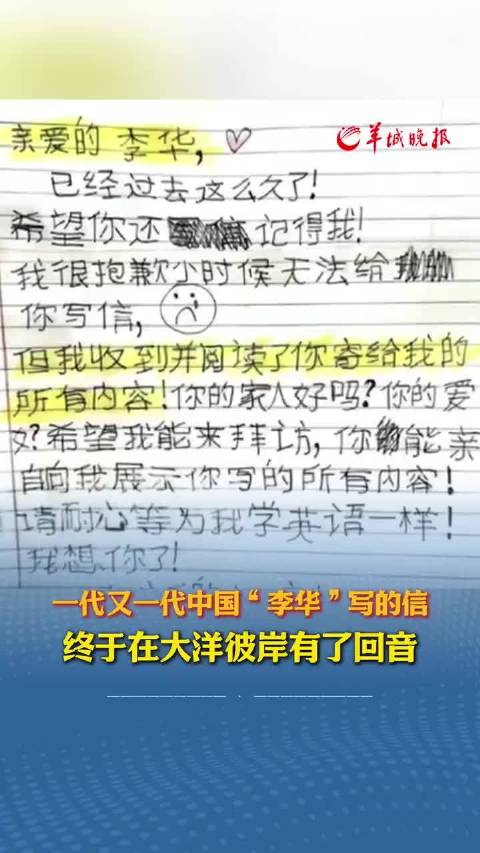 羊城晚报
亲爱的 李华,
已经过去这么久了!
希望你还记得我!
我很抱歉小时候无法给
你写信,
但我收到并阅读了你寄给我的
所有内容!你的家人好吗?你的爱
好?希望我能来拜访,你能亲
自向我展示你写的所有内容!
请耐心等为我学英语一样!
我想你了!
一代又一代中国“李华”写的信
终于在大洋彼岸有了回音